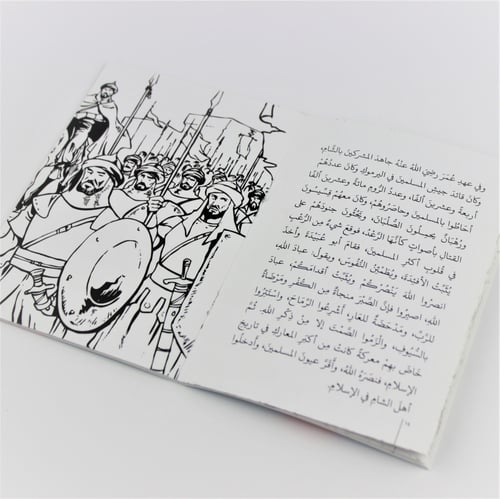 وفي عهدِ عُمَرَ رضيَ اللهُ عنْهُ جاهدَ المشركينَ بالشَّامِ،
وكانَ قائدَ جيشِ المسلمينَ في اليرموكِ وكانَ عددُهُمْ
أربعةً وعشرينَ ألفًا، وعددُ الرُّومِ مائةً وعشرينَ ألفًا
أحاطُوا بالمسلمينَ وحاصَرُوهُمْ، وكانَ معهُمْ قسّيسُونَ
ورُهْبَانٌ يحملُونَ الصُّلْبَانَ، ويَحُثُّونَ جنودَهُمْ على
القتالِ بأصواتٍ كأنَّها الرَّعْدُ، فوقعَ شيءٌ مِنَ الرُّعْبِ
في قلوبِ أكثرِ المسلمينَ، فقامَ أبو عُبَيْدَةَ وأخذَ
يُثَبِّتُ الأفئِدَةَ، ويُطَمْئِنُ النُّفُوسَ، ويقولُ: عبادَ اللهِ،
انصرُوا اللهَ يَنْصُرْكُمْ ويُثَبِّتْ أقدامَكُمْ، عبادَ
اللهِ، اصبرُوا فإنَّ الصَّبْرَ منجاةٌ مِنَ الكُفْرِ ومَرْضَاةٌ
للرَّبِّ، ومَدْحَضَةٌ للعَارِ، أشْرِعُوا الرِّمَاحَ، واستَتِرُوا
بالسُّيُوفِ، والْزَمُوا الصَّمْتَ إلا مِنْ ذكْرِ اللهِ. ثُمَّ
خَاضَ بِهِمْ معركةً كانَتْ مِنْ أكبرِ المعاركِ في تاريخِ
الإسلامِ، فنصَرَهُ اللهُ، وأقَرَّ عيونَ المسلمينَ، وأدخلُوا
أهلَ الشَّامِ في الإسلامِ.